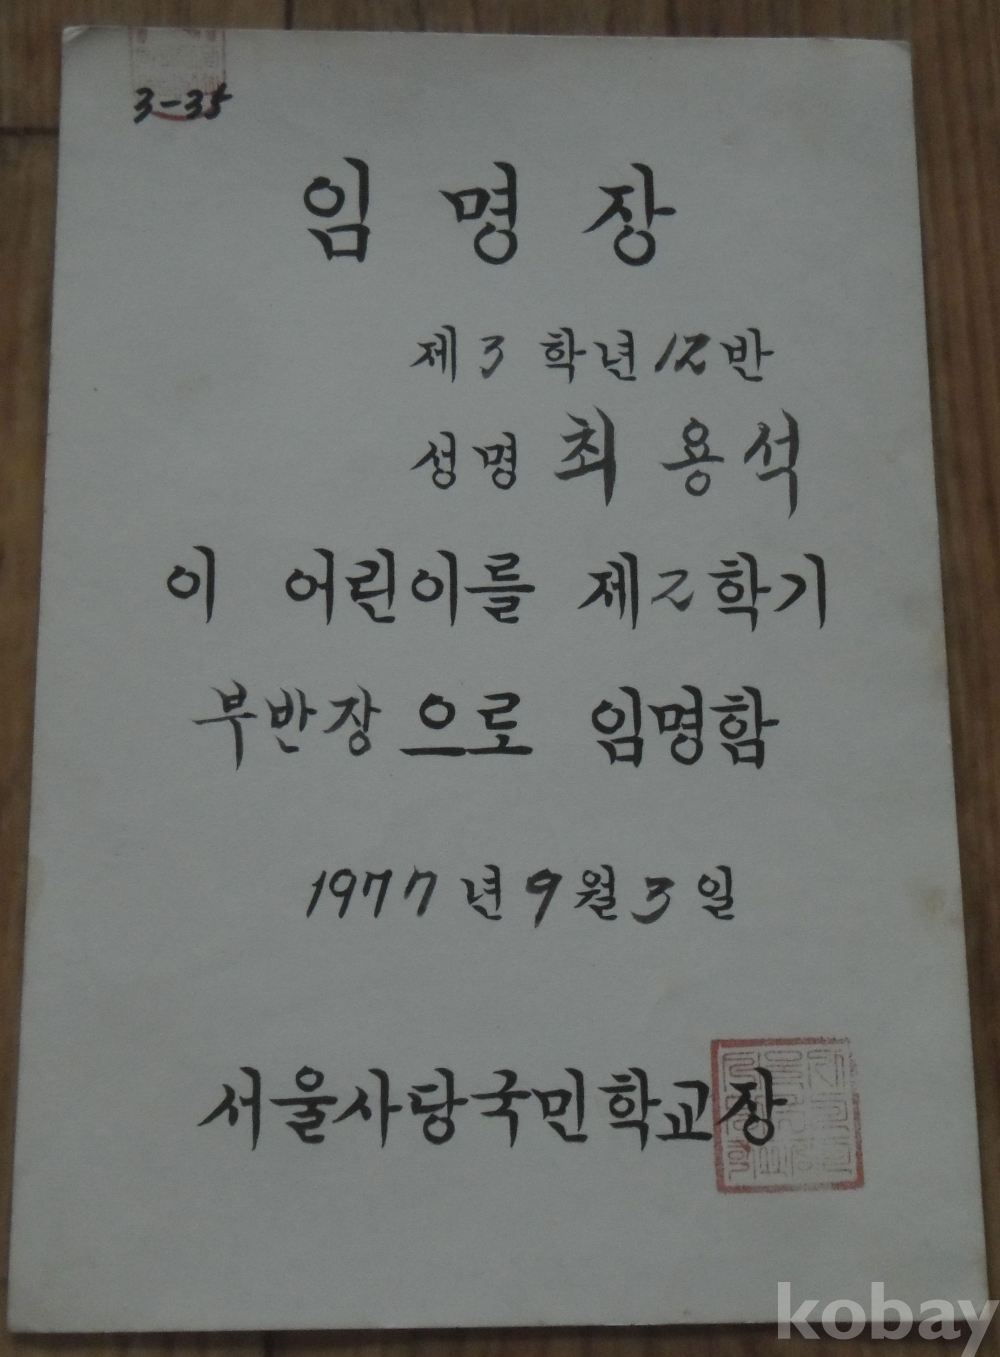 3-35
임명장
제3학년 12반
성명 최용석
이 어린이를 제2학기
부반장으로 임명함
1977년 9월 3일
서울사당국민학교장
kobay